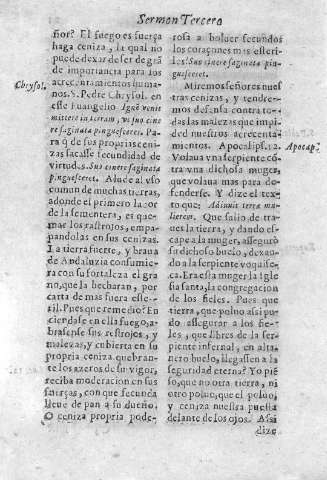 Sermon Tercero
ñor? El fuego es fuerça
haga ceniza, la qual no
puede dexar de ser de grã
de importancia para los
acrecentamientos huma-
nos. S. Pedre Chrysol. en
este Euangelio Ignẽ venit
mittere in terram, vt suo cine
re saginata pinguesceret. Pa-
ra q̃ de sus propias ceni-
zas sacasse fecundidad de
virtudes. Suo cinere saginata
pinguesceret. Alude al vso
comun de muchas tierras,
adonde el primero labor
de la sementera, es que-
mar los rastrojos, empa-
pandolas en sus cenizas.
La tierra fuerte, y braua
de Andaluzia consumie-
ra con su fortaleza el gra
no, que la hecharan, por
carta de mas fuera este-
ril. Pues que remedio? En
ciendase en ella fuego, a-
brasense sus restrojos, y
malezas, y cubierta en su
propria ceniza quebran-
te los azeros de su vigor,
reciba moderacion en sus
fuerças, con que fecunda
lleue de pan a su dueño.
O ceniza propria pode-
Chrysol.
rosa a boluer fecundos
los coraçones mas esteri-
les! Suo cinere saginata pin-
guesceret.
Miremos señores nues
tras cenizas, y tendre-
mos defensa contra to-
das las malezas que impi
den nuestros acrecenta-
mientos. Apocalips. 12.
Volaua vna serpiente cõ-
tra vna dichosa muger,
que volaua mas para de-
fenderse. Y dize el tex-
to que: Adiuuit terra mu-
lierem. Que salio de tra-
ues la tierra, y dando es-
cape a la muger, asseguró
su dichoso buelo, dexan-
do a la serpiente voquise-
ca. Era esta muger la Igle
sia santa, la congregacion
de los fieles. Pues que
tierra, que poluo assi pu-
do assegurar a los fie-
les, que libres de la ser-
piente infernal, en alta-
nero buelo, llegassen a la
seguridad eterna? Yo piẽ
so, que no otra tierra, ni
otro poluo, que el poluo,
y ceniza nuestra puesta
delante de los ojos. Assi
dize
Apocap.